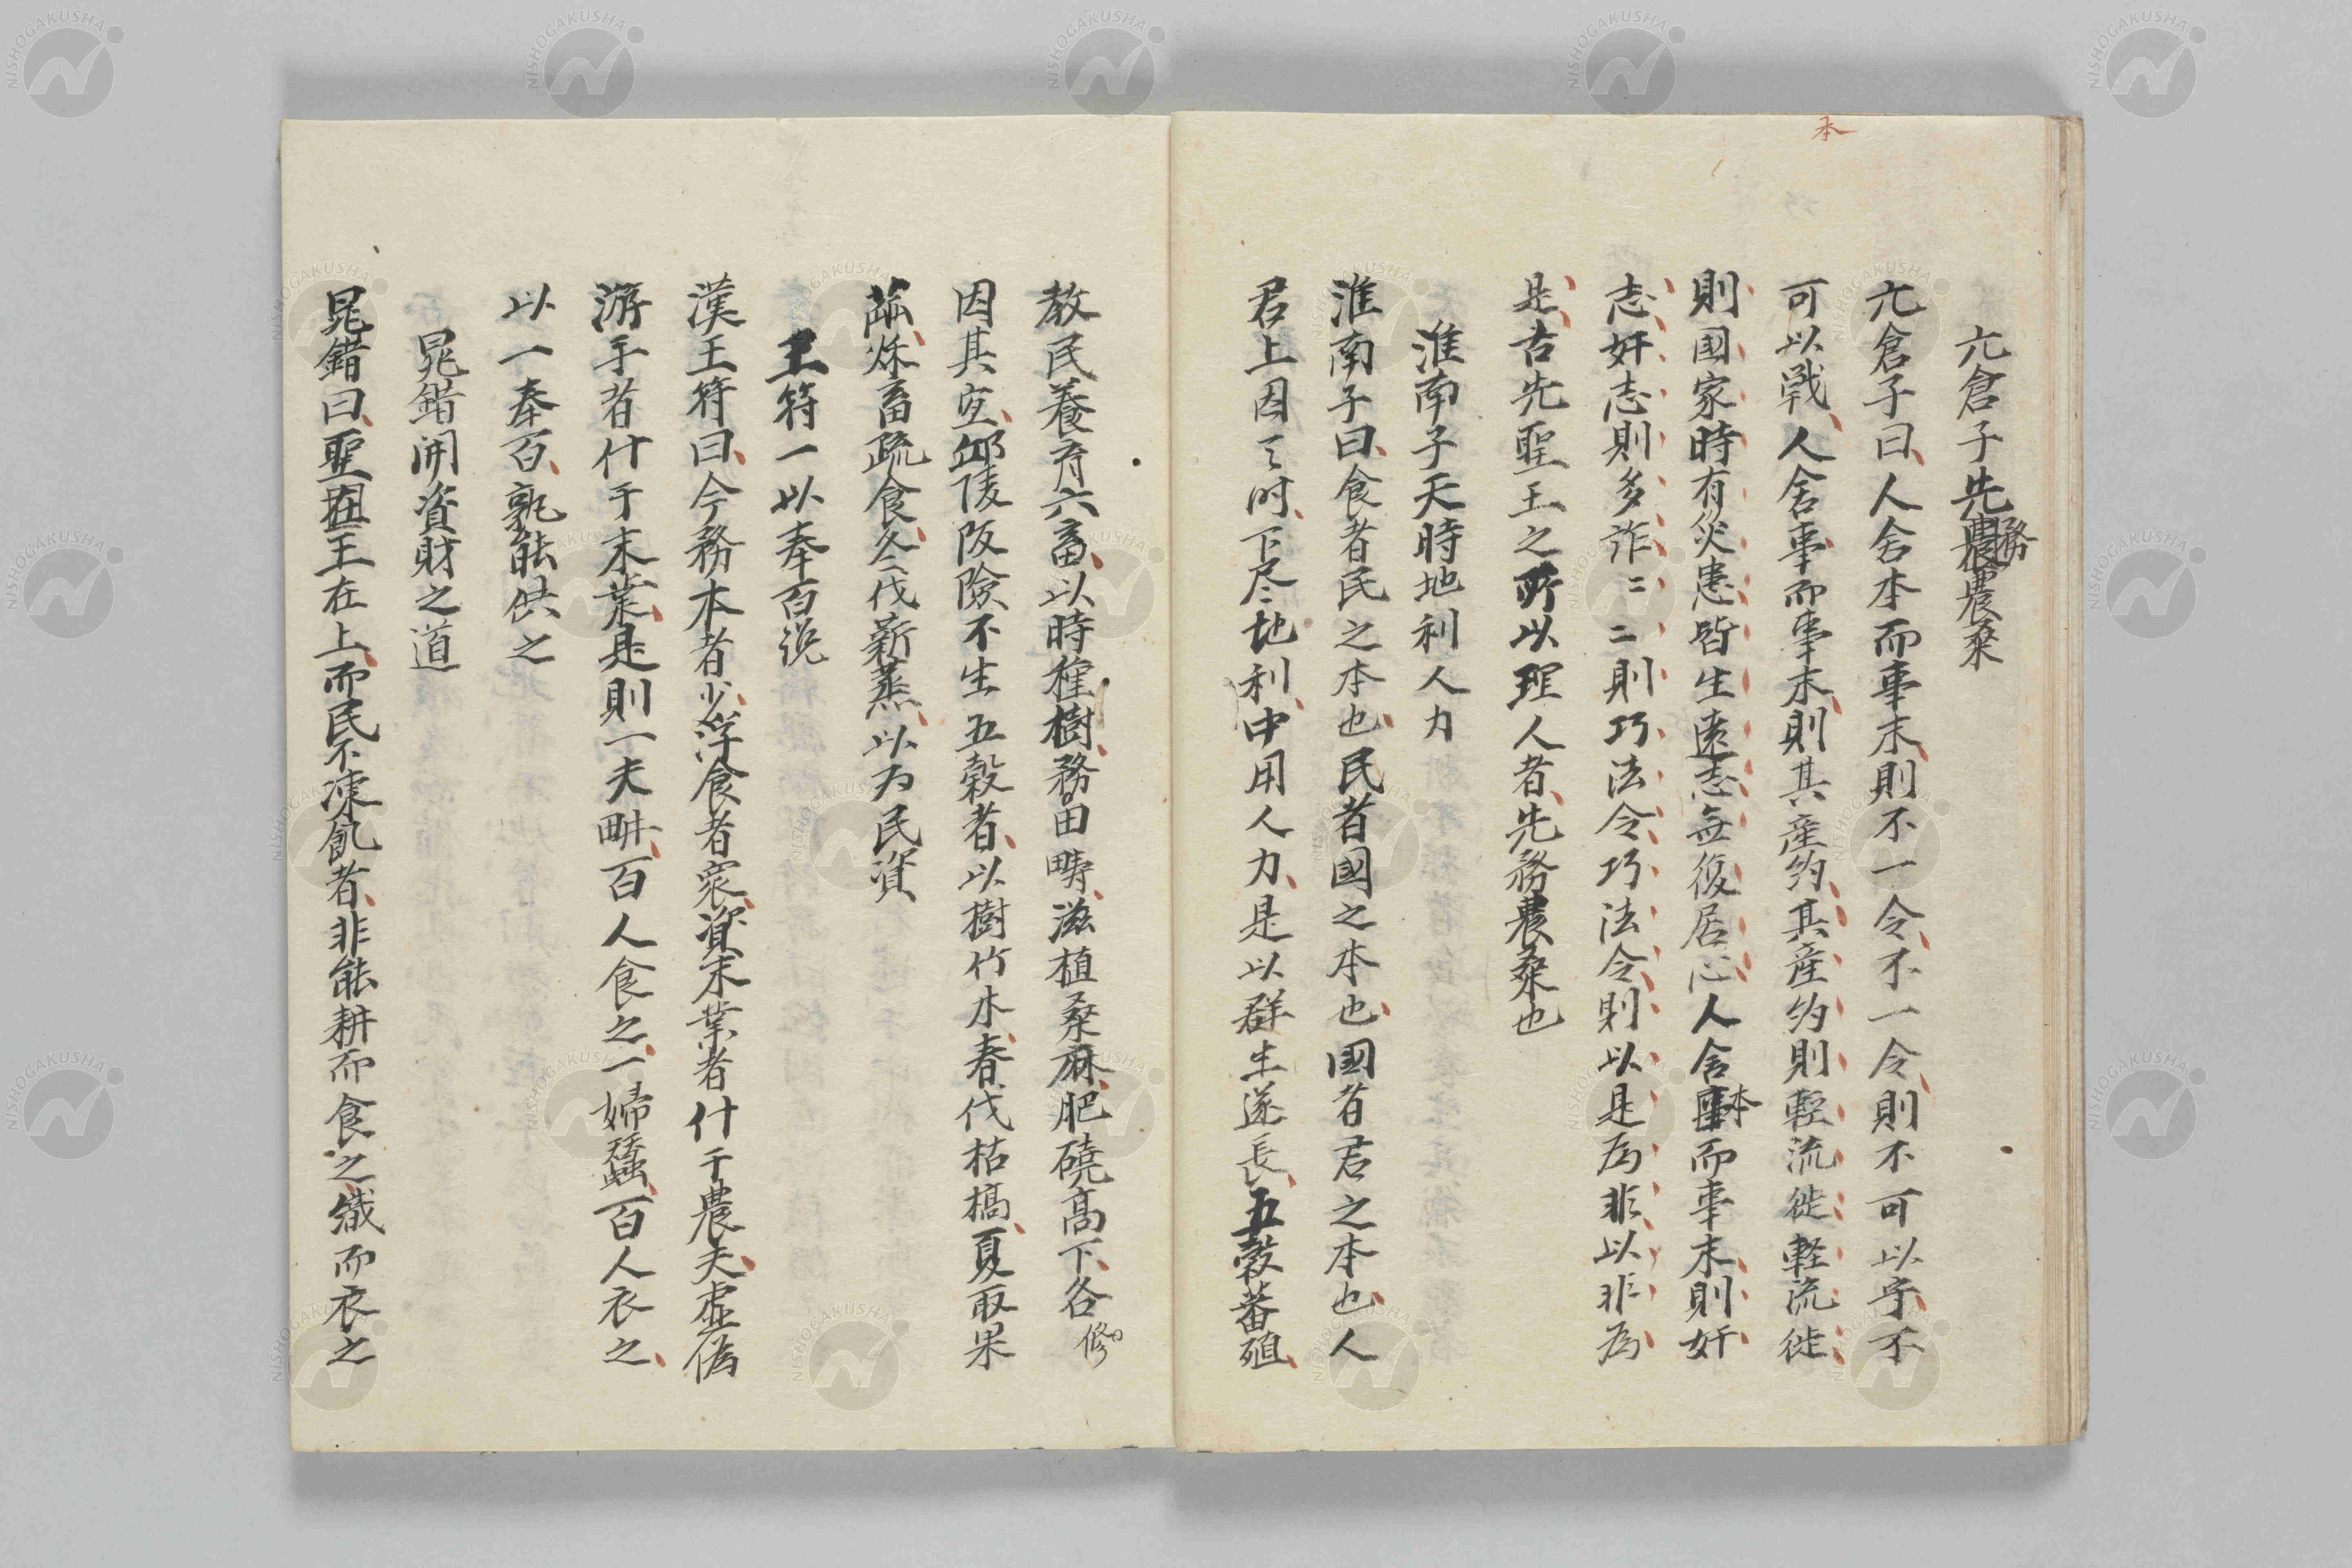 本
亢倉子先務農桑
亢倉子曰人舍本而事末則不一令不一令則不可以守不
可以戰人舍事而事末則其産約其産約則輕流徙軽流徙
則國家時有災患皆生遠志無復居心人舍本而事末則奸
志奸志則多詐〻〻則巧法令巧法令則以是為非以非為
是古先聖王之所以理人者先務農桑也
淮南子天時地利人力
淮南子曰食者民之本也民者國之本也國者君之本也人
君上因天时下尽地利中用人力是以群生遂長五穀蕃殖
教民養育六畜以時種樹務田疇滋植桑麻肥磽高下各
因其宜邱陵阪險不生五穀者以樹竹木春伐枯槁夏取果
蓏秋畜疏食冬伐薪蒸以为民資
王符一以奉百説
漢王符曰今務本者少浮食者衆資末業者什于農夫虚偽
游手者什于末業是則一夫畊百人食之一婦蠶百人衣之
以一奉百孰能供之
晁錯開資財之道
晁錯曰聖王在上而民不凍飢者非能耕而食之織而衣之
NISHOGAKUSHA